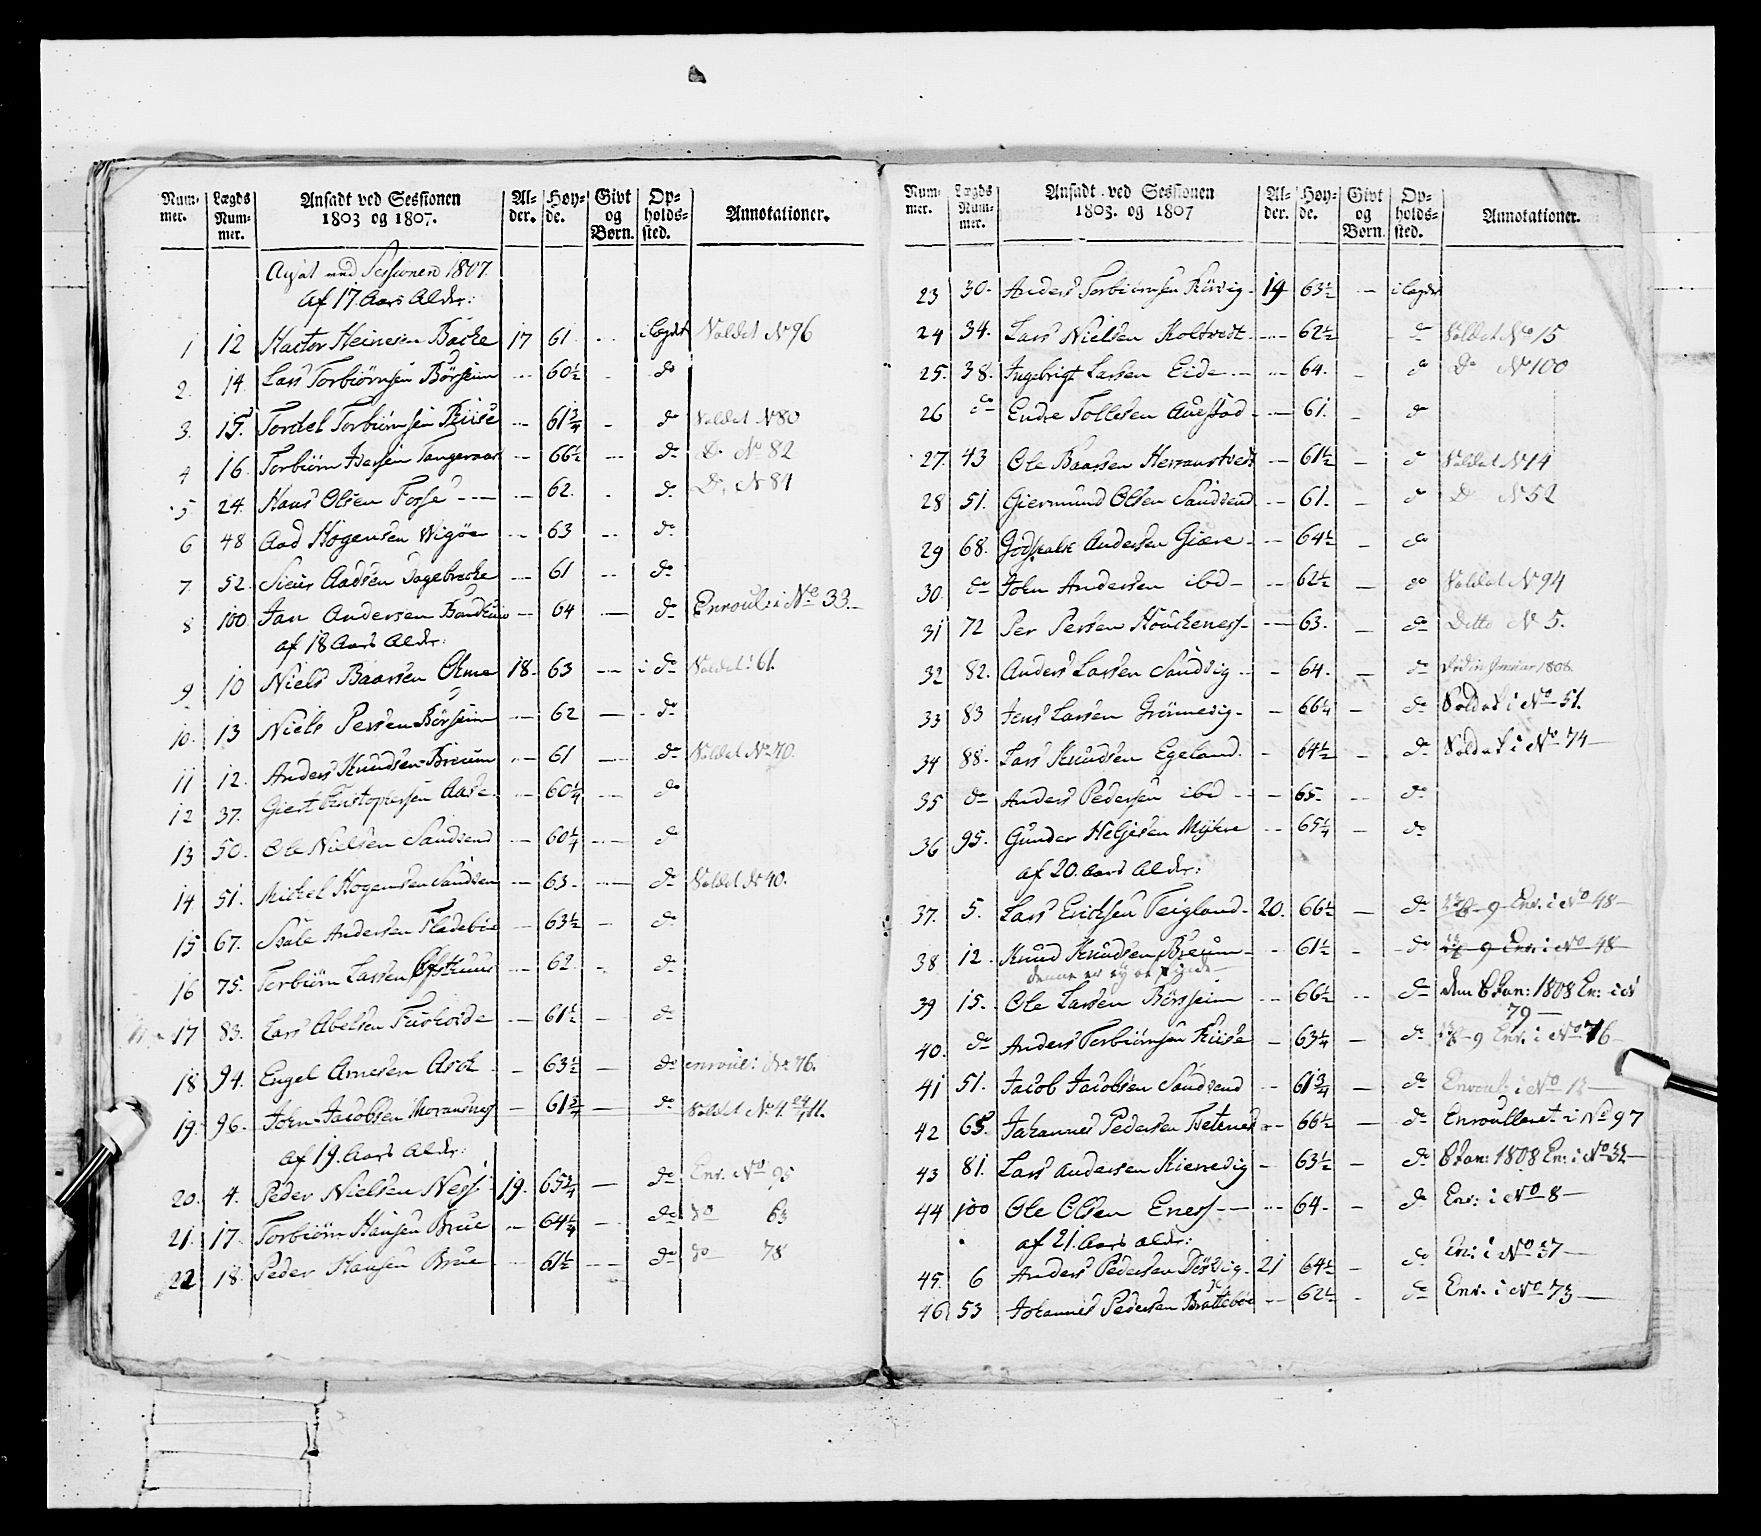 Num-mer. Lægds Num-mer. Ansadt ved Sessionen 1803 og 1807. Al-der. Høy-de. Givt og Børn. Op-holds-sted. Annotationer.
Ansat ved Sessionen 1807.
af 17 Aars Alder:
1 12 Hactor Heinesen Backe 17 61 i Legdet Soldat No 96
2. 14. Lars Torbiørnsen Børseim 60½ do
3. 15. Tordel Torbiørnsen Riise 61¾ do Soldat No 80
4 16. Torbiørn Iversen Tangeraas 66½ do Do No 82
5 24. Hans Olsen Fosse 62. do Do No 84
6 48 Aad Hogensen Wigøe 63 do
7. 52. Siur Aadsen Sagebrecke 61 do
8 100 Jan Andersen 64 do Enroul: i No 33.
af 18 Aars Alder:
9. 10 Niels Baarsen Ølme 18. 63 i do Soldat: 61.
10. 13 Niels Persen Børseim 62 do
11 12. Anders Knudsen Breum 61 do Soldat No 70.
12 37. Giert Christophersen Aase 60¼ do
13 50. Ole Nielsen Sandvend 60¼ do
14 51. Michel Hogensen Sandven 63. do Soldat No 40.
15 67. Siale Andersen Fladebøe 63½ do
16 75. Torbiørn Larsen 62. do
17 83. Lars Abelsen 61½ do
18 94. Engel Arnesen 63½ do enroul: No 76.
19. 96. John Jacobsen 61¾ do Soldat No 4.
af 19. Aars Alder:
20. 4. Peder Nielsen Ness 19. 65¾ do Enr. No 95
21. 17. Torbiørn Hansen Brue 64¼ do do 63
22 18. Peder Hansen Brue 61½ do do 78
Num-mer. Lægds Num-mer. Ansadt ved Sessionen 1803. og 1807 Al-der. Høy-de. Givt og Børn. Op-holds-sted. Annotationer.
23 30. Anders Torbiørnsen 19 63½ i legdet
24 34. Lars Nielsen Holtvedt 62½ do Soldat No 15
25. 38. Ingebrigt Larsen Eide 64. do Do No 100
26 do Endre Tollesen Auestad 61. do
27. 43 Ole Baarsen Heranstvedt 61½ do Soldat No 14
28 51. Giermund Olsen Sandvend 61. do Do No 52
29 68. Godskalk Andersen Giære 64½ do
30. do John Andersen ibd 62½ do Soldat No 94
31 72 Per Persen 63. do Ditto No 5.
32 82. Anders Larsen Sandvig 64. do 1808.
33 83 Jens Larsen Grønnevig 66¼ do Soldat i No 51.
34 88. Lars Knudsen Egeland 64½ do Soldat i No 74
35 do Anders Pedersen ibd 65. do
36 95. Gunder Helgesen Myhre 65¼ do
af 20. Aars Alder:
37. 5. Lars Erichsen Teigland 20. 66½ do Enr. i No 48
38 12. Knud Knudsen Breum 61½ do Enr. i No 48
denne er
39 15. Ole Larsen Børsseim 66½ do dem 6 Jan: 1808 En: i No
79
40. do Anders Torbiørnsen Riise 63¼ do Enr. i No 76
41 51. Jacob Jacobsen Sandvend 61¾ do Enroul: i No 12
42 65. Johannes Pedersen 66½ do Enroulleret i No 97
43 81. Lars Andersen Kierevig 63½ do 6 Jan: 1808 En: i No 32
44 100 Ole Olsen Eness 64. do Enr: i No 8
af 21. Aars Alder:
45. 6 Anders Pedersen 21 64½ do En: i No 37
46 53 Johannes Pedersen Brattebøe 62½ do Enr. i No 73